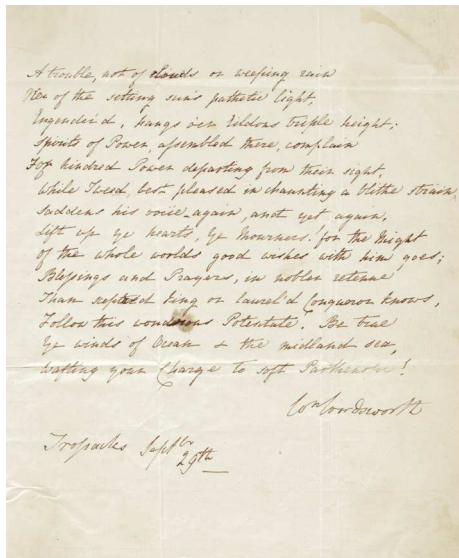 A trouble, not of clouds or weeping rain
Nor of the setting sun's pathetic light,
Engender'd, hangs o'er Eildons triple height;
Spirits of Power, assembled there, complain
For kindred Power departing from their sight,
While Tweed, best pleased in chaunting a blithe strain
Saddens his voice again, and yet again.
Lift up ye hearts, ye Mourners! for the Might
of the whole worlds good wishes with him goes;
Blessings and Prayers, in nobler retenue
Than sceptred King or laurel'd Conqueror knows,
Follow this wonderous Potentate. Be true
Ye winds of Ocean & the midland sea,
Wafting your Charge to soft Parthenope!
Wm Wordsworth
Trosachs Septbr
29th